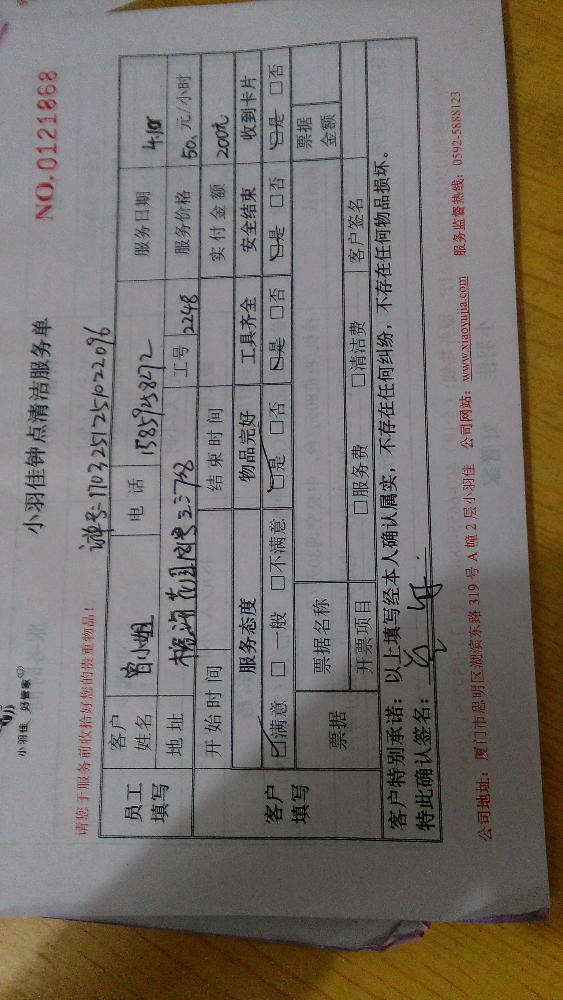 小羽佳 好管家
小羽佳钟点清洁服务单
NO.0121868
请您于服务前收拾好您的贵重物品!
订单号:1703251251022096
员工填写 客户姓名 曾小姐 电话 服务日期
地址 工号 2248 服务价格 50.元/小时
开始时间 结束时间 实付金额 200元
客户填写 服务态度 物品完好 工具齐全 安全结束 收到卡片
☑满意 □ 一般 □不满意 ☑是 □否 ☑是 □否 ☑是 □否 ☑是 □否
票据 票据名称 票据金额
开票项目 □服务费 □清洁费 客户签名
客户特别承诺:以上填写经本人确认属实,不存在任何纠纷,不存在任何物品损坏。
特此确认签名:
公司地址:厦门市思明区湖滨东路 319 号 A 幢 2 层小羽佳 公司网站:www.xiaoyujia.com 服务监督热线:0592-5888123